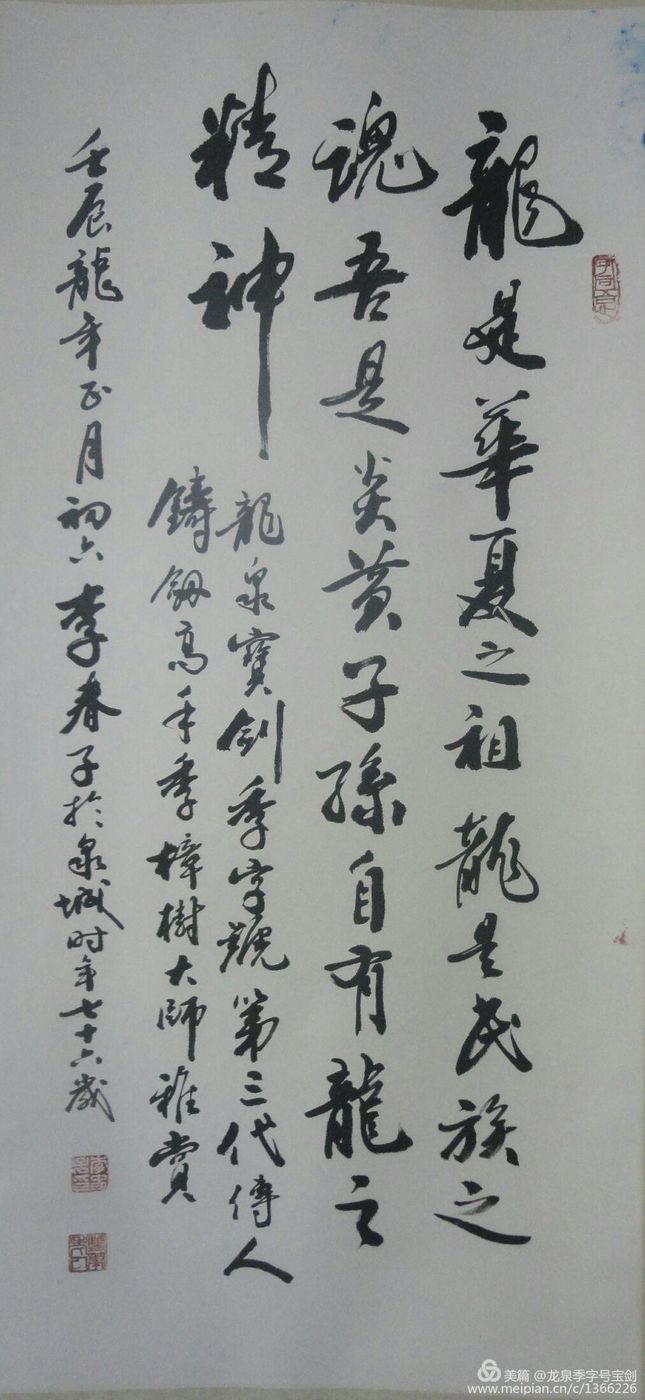 龍是華夏之祖龍是民族之
魂吾是炎黄子孫自有龍之
精神
龍泉寶劍季字號第三代傳人
鑄劔高手季樟樹大師雅賞
壬辰龍年正月初六李春子於泉城时年七十六歲
美篇 @龙泉季字号宝剑
www.meipian.cn/c/1366226